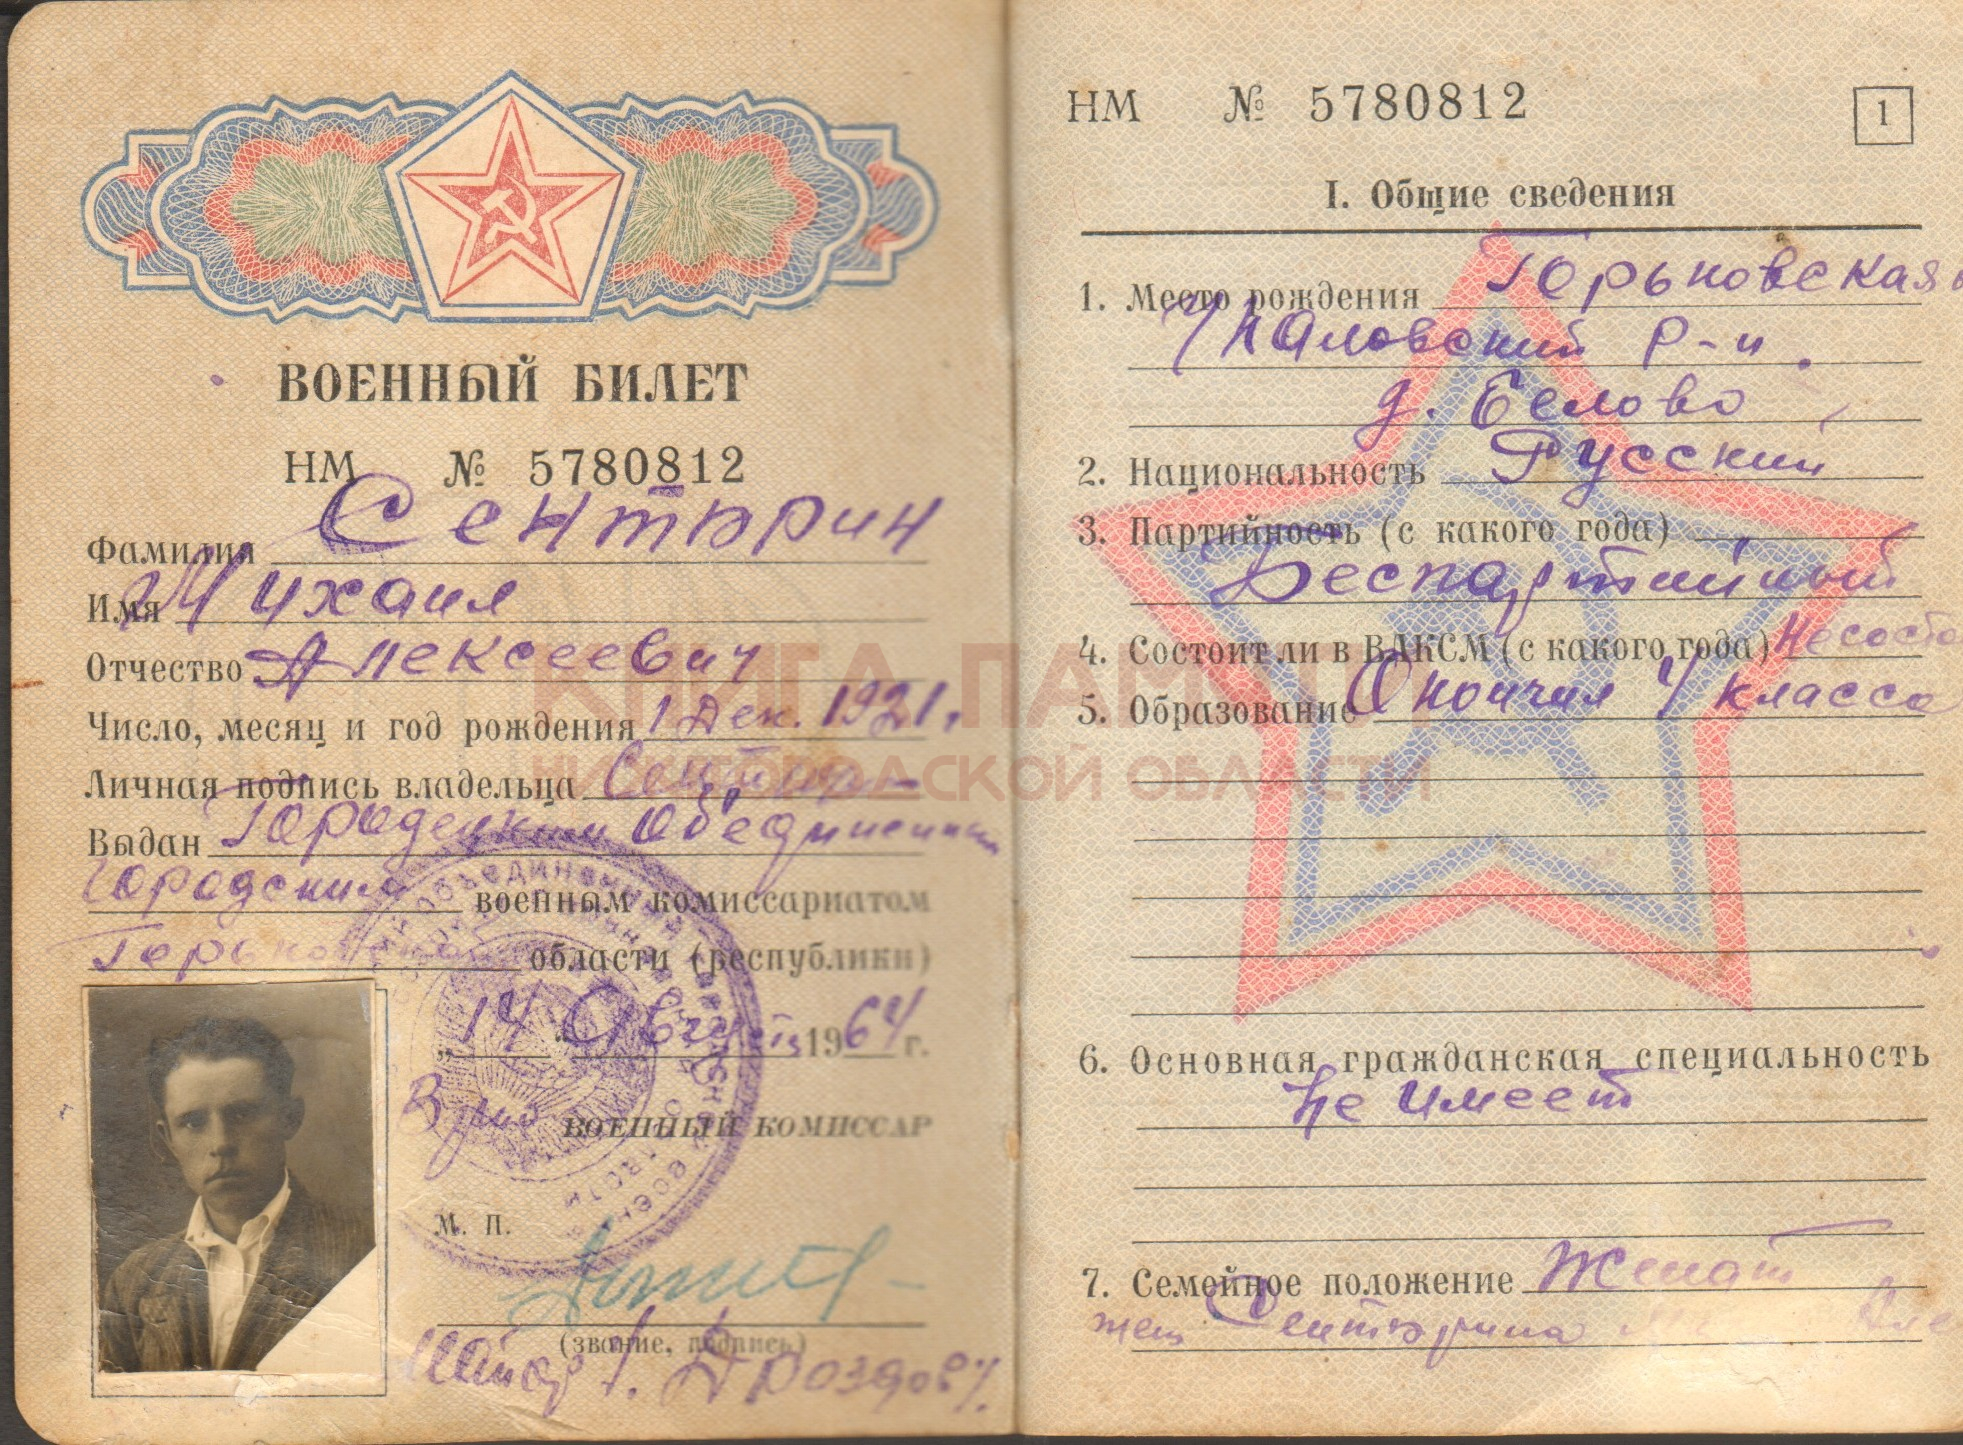 ВОЕННЫЙ БИЛЕТ
НМ № 5780812
Фамилия Сентюрин
Имя Михаил
Отчество Алексеевич
Число, месяц и год рождения 1 Дек. 1921 г.
Личная подпись владельца
Выдан Городецким Объединенным
Городским военным комиссариатом
Горьковской области (республики)
„14“ Августа 1964 г.
Врио ВОЕННЫЙ КОМИССАР
М. П.
(звание, подпись)
Майор /. Дроздов /.
НМ № 5780812
1
I. Общие сведения
1. Место рождения Горьковская
Чкаловский р-н.
д. Белово
2. Национальность Русский
3. Партийность (с какого года)
Беспартийный
4. Состоит ли в ВЛКСМ (с какого года) Не состо
5. Образование Окончил 4 класса
6. Основная гражданская специальность
Не имеет
7. Семейное положение Женат
жена Сентюрина
КНИГА ПАМЯТИ
НИЖЕГОРОДСКОЙ ОБЛАСТИ